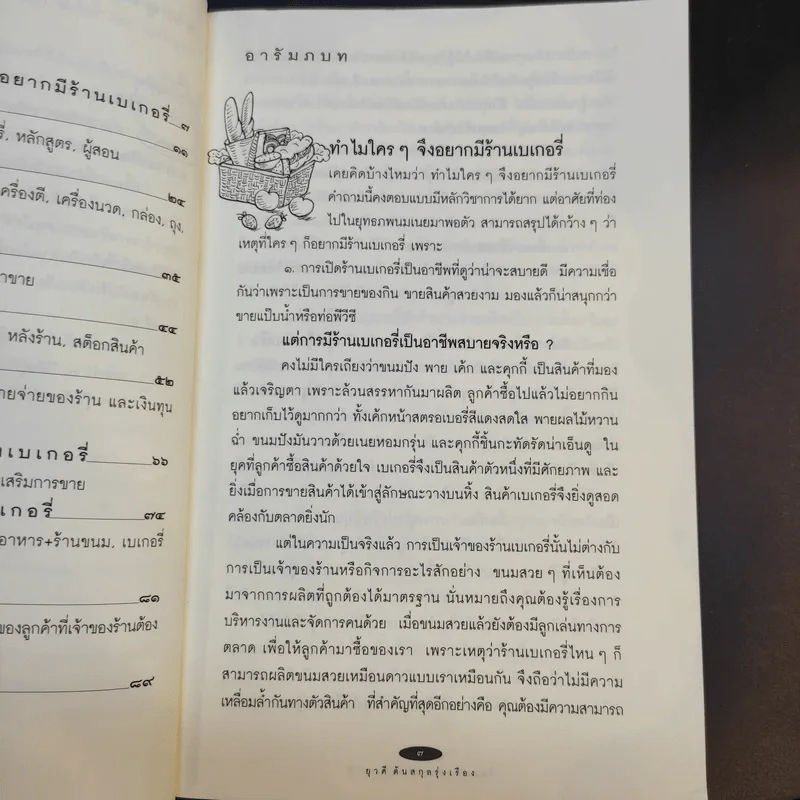 อยากมีร้านเบเกอรี่ ๗
หลักสูตร, ผู้สอน ๑๑
๒๔
ครื่องตี, เครื่องนวด, กล่อง, ถุง,
๓๕
าขาย
๔๔
หลังร้าน, สต็อกสินค้า
๕๒
ายจ่ายของร้าน และเงินทุน
งเบเกอรี่ ๖๖
เสริมการขาย
เกอรี่ ๗๔
อาหาร+ร้านขนม, เบเกอรี่
๘๑
ของลูกค้าที่เจ้าของร้านต้อง
๘๙
อารัมภบท
ทำไมใคร ๆ จึงอยากมีร้านเบเกอรี่
เคยคิดบ้างไหมว่า ทำไมใคร ๆ จึงอยากมีร้านเบเกอรี่
คำถามนี้คงตอบแบบมีหลักวิชาการได้ยาก แต่อาศัยที่ท่อง
ไปในยุทธภพนมเนยมาพอตัว สามารถสรุปได้กว้าง ๆ ว่า
เหตุที่ใคร ๆ ก็อยากมีร้านเบเกอรี่ เพราะ
๑. การเปิดร้านเบเกอรี่เป็นอาชีพที่ดูว่าน่าจะสบายดี มีความเชื่อ
กันว่าเพราะเป็นการขายของกิน ขายสินค้าสวยงาม มองแล้วก็น่าสนุกกว่า
ขายแป๊บน้ำหรือท่อพีวีซี
แต่การมีร้านเบเกอรี่เป็นอาชีพสบายจริงหรือ ?
คงไม่มีใครเถียงว่าขนมปัง พาย เค้ก และคุกกี้ เป็นสินค้าที่มอง
แล้วเจริญตา เพราะล้วนสรรหากันมาผลิต ลูกค้าซื้อไปแล้วไม่อยากกิน
อยากเก็บไว้ดูมากกว่า ทั้งเค้กหน้าสตรอเบอรี่สีแดงสดใส พายผลไม้หวาน
ฉ่ำ ขนมปังมันวาวด้วยเนยหอมกรุ่น และคุกกี้ชิ้นกะทัดรัดน่าเอ็นดู ใน
ยุคที่ลูกค้าซื้อสินค้าด้วยใจ เบเกอรี่จึงเป็นสินค้าตัวหนึ่งที่มีศักยภาพ และ
ยิ่งเมื่อการขายสินค้าได้เข้าสู่ลักษณะวางบนหิ้ง สินค้าเบเกอรี่จึงยิ่งดูสอด
คล้องกับตลาดยิ่งนัก
แต่ในความเป็นจริงแล้ว การเป็นเจ้าของร้านเบเกอรี่นั้นไม่ต่างกับ
การเป็นเจ้าของร้านหรือกิจการอะไรสักอย่าง ขนมสวย ๆ ที่เห็นต้อง
มาจากการผลิตที่ถูกต้องได้มาตรฐาน นั่นหมายถึงคุณต้องรู้เรื่องการ
บริหารงานและจัดการคนด้วย เมื่อขนมสวยแล้วยังต้องมีลูกเล่นทางการ
ตลาด เพื่อให้ลูกค้ามาซื้อของเรา เพราะเหตุว่าร้านเบเกอรี่ไหน ๆ ก็
สามารถผลิตขนมสวยเหมือนดาวแบบเราเหมือนกัน จึงถือว่าไม่มีความ
เหลื่อมล้ำกันทางตัวสินค้า ที่สำคัญที่สุดอีกอย่างคือ คุณต้องมีความสามารถ
๗
ยุวดี ตันสกุลรุ่งเรือง